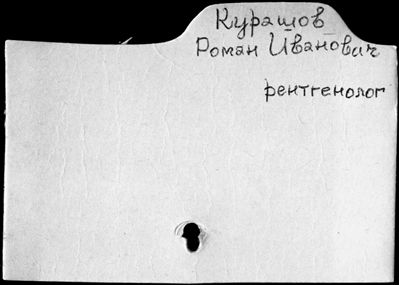 Курашов
Роман Иванович
рентгенолог